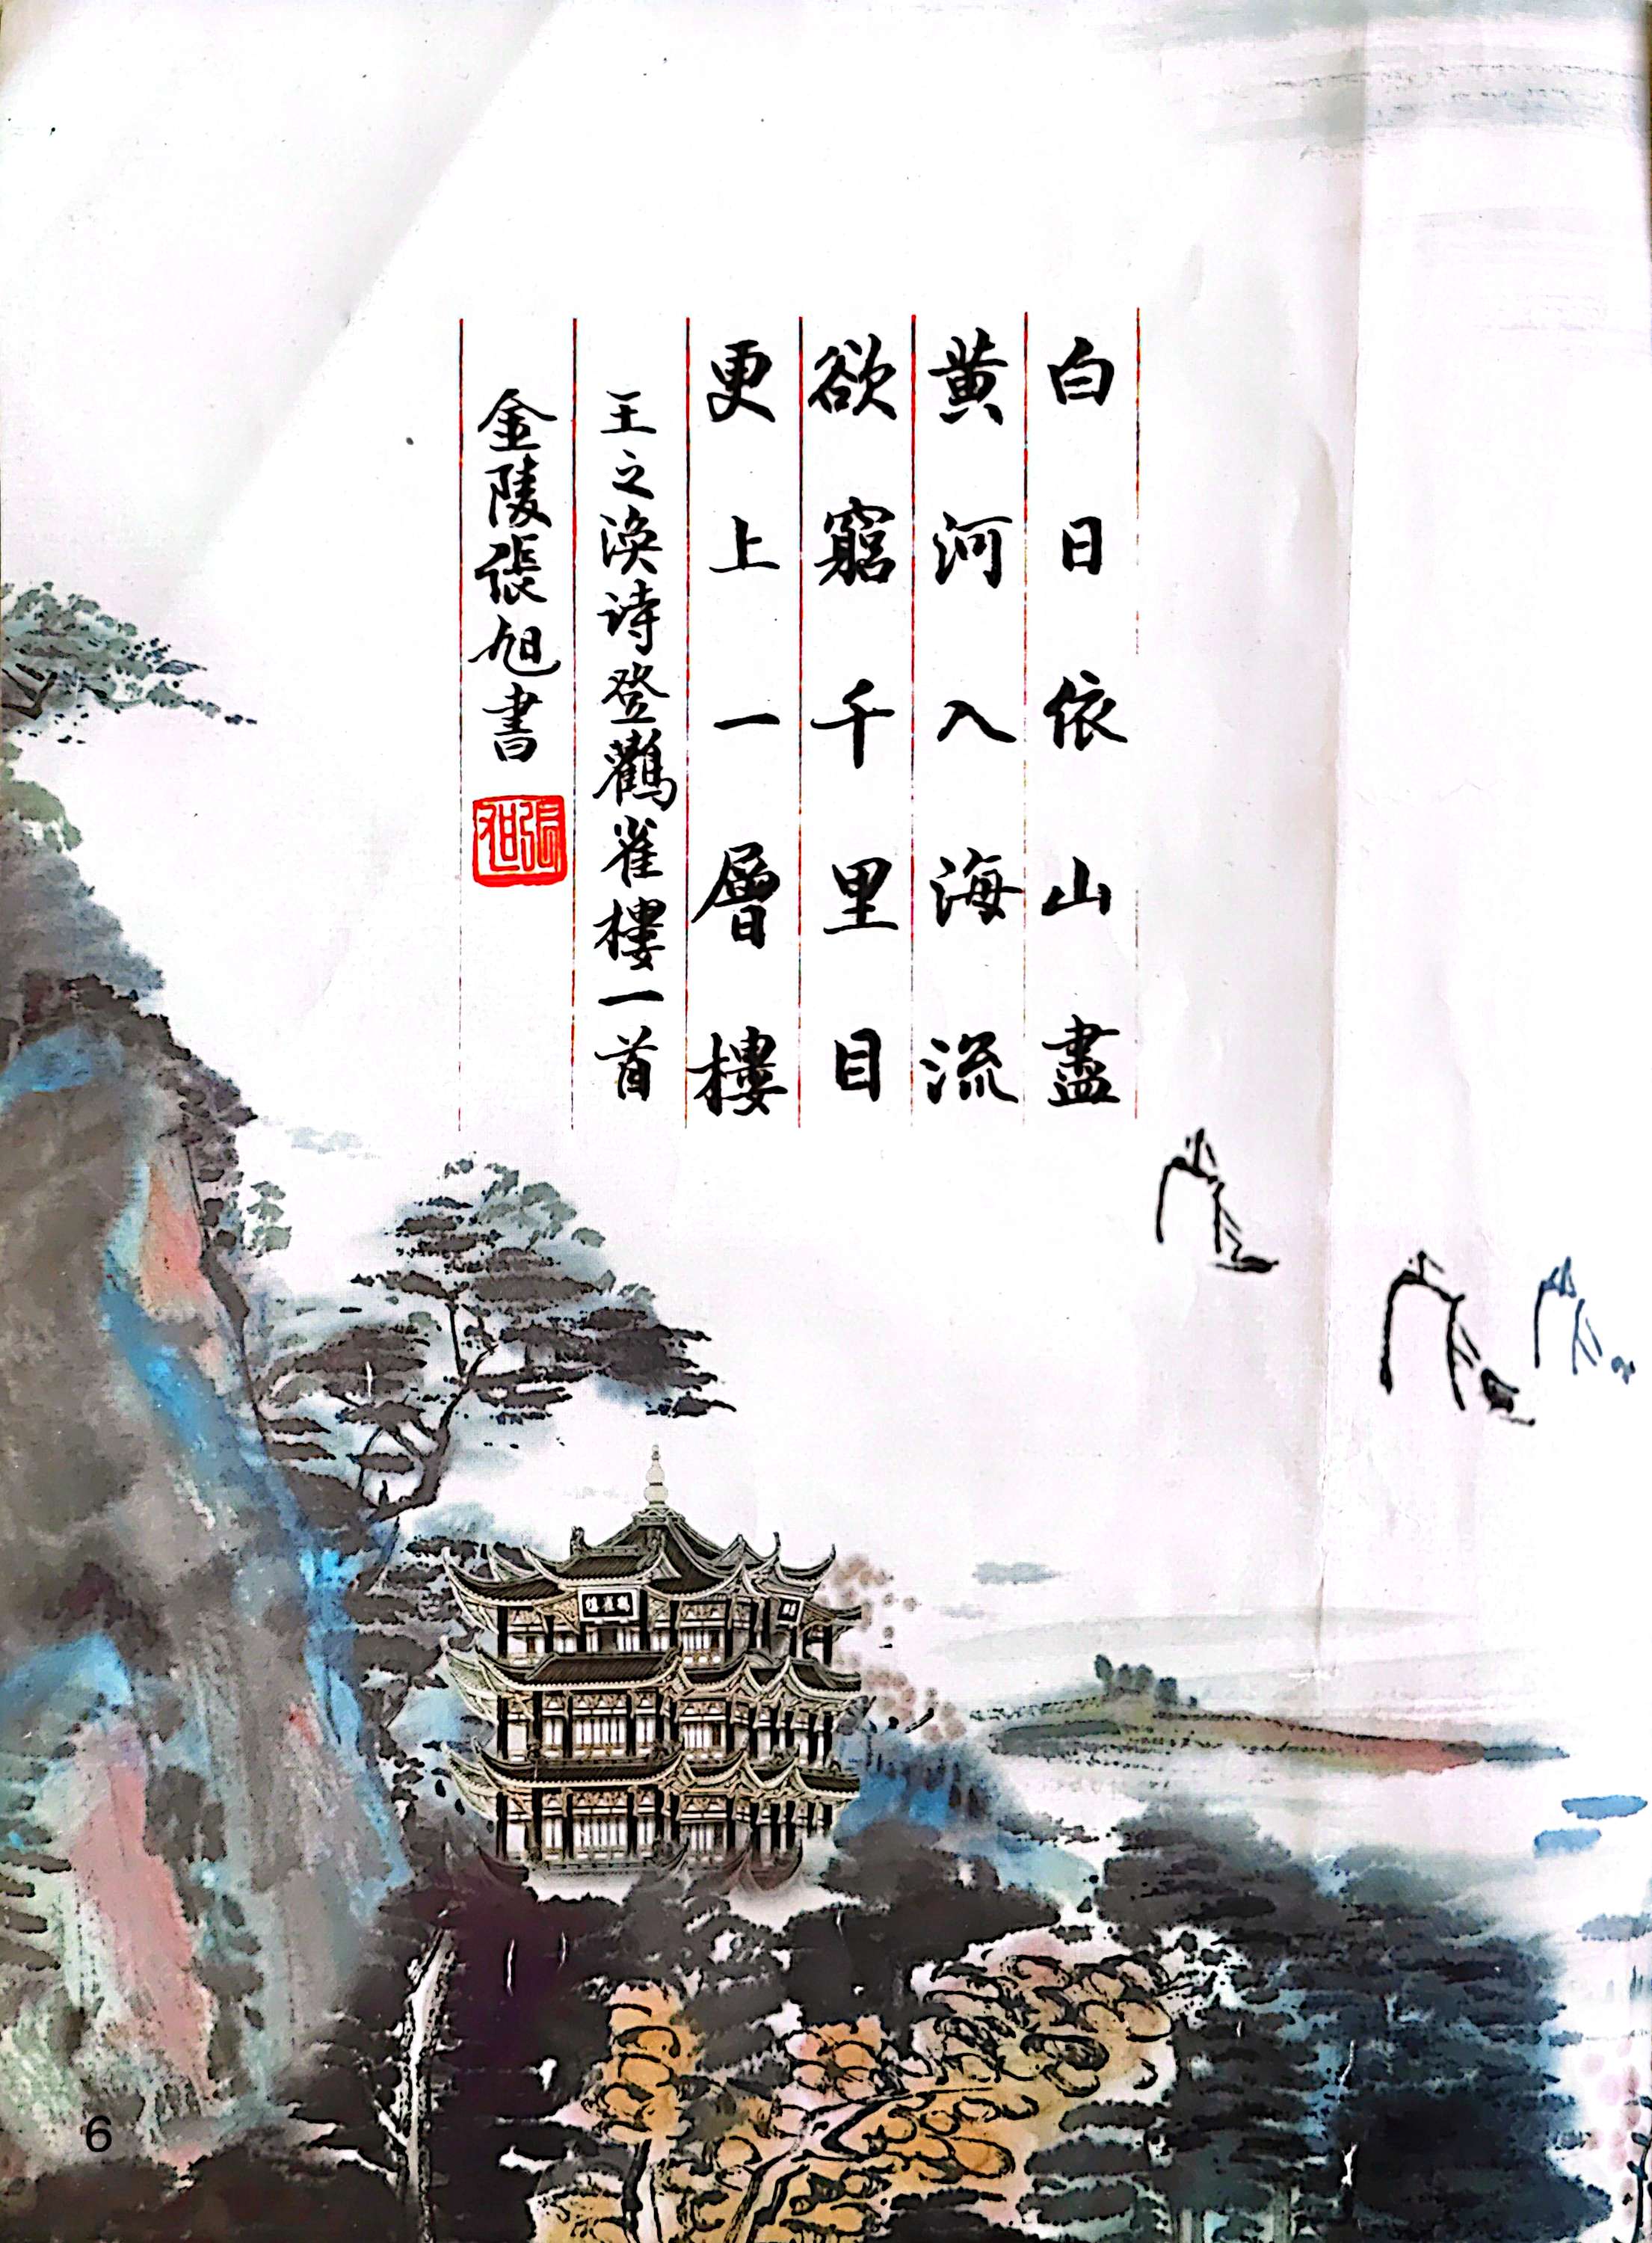 白日依山盡
黄河入海流
欲窮千里目
更上一層樓
王之渙诗登鸛雀樓一首
金陵張旭書
張旭
鸛雀樓
6